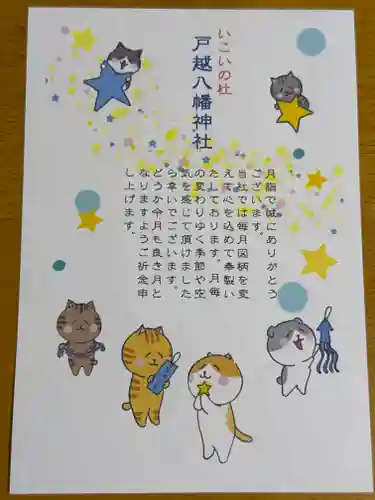 いこいの杜
戸越八幡神社
月詣で誠にありがとう
ございます。
当社では毎月図柄を変
えて心を込めて奉製い
たしております。月毎
の変わりゆく季節や空
気を感じて頂けました
ら幸いでございます。
どうか今月も良き月と
なりますようご祈念申
し上げます。